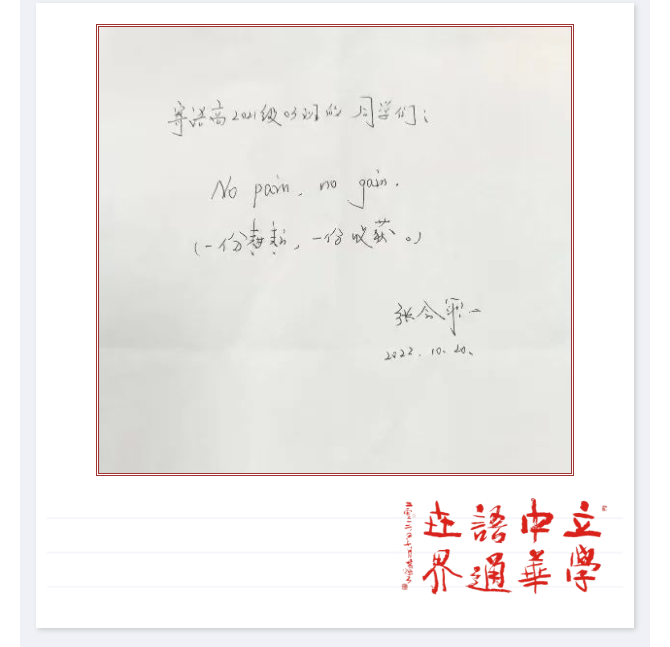 寄语高2021级03班的同学们：
No pain, no gain.
(一份耕耘，一份收获。)
2022.10.20.
立學
中華
語通
世界